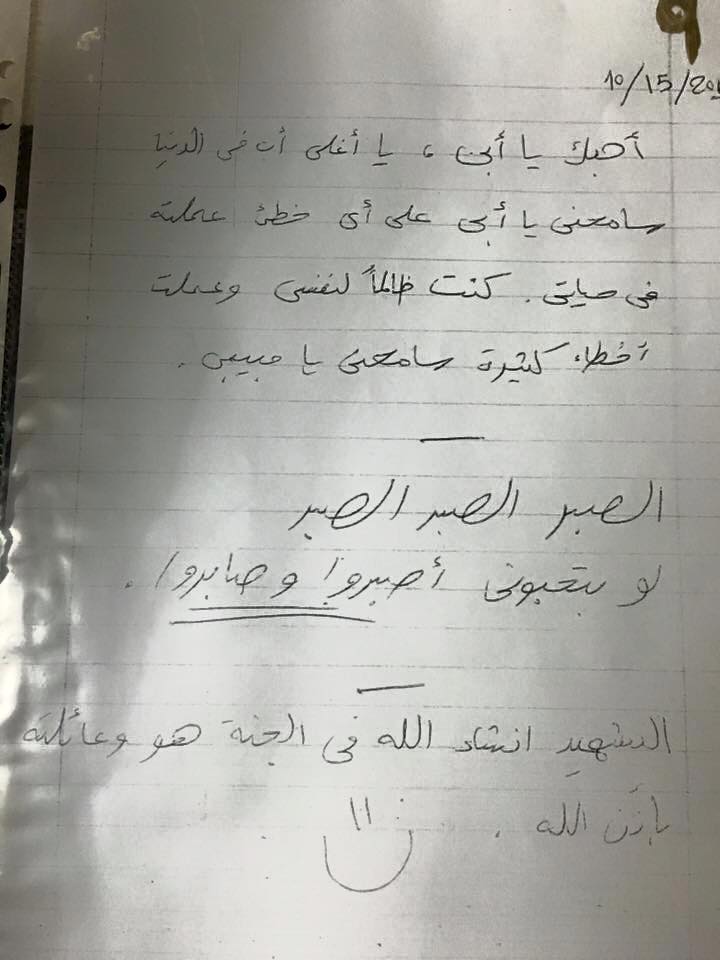 9
10/15/20
أحبك يا أبى ، يا أغلى أب فى الدنيا
سامحنى يا أبى على أى خطئ عملته
فى حياتى . كنت ظالماً لنفسى وعملت
أخطاء كثيرة سامحنى يا حبيبى .
الصبر الصبر الصبر
لو بتحبونى أصبروا وصابروا .
الشهيد انشاء الله فى الجنة هو وعائلته
بإذن الله .